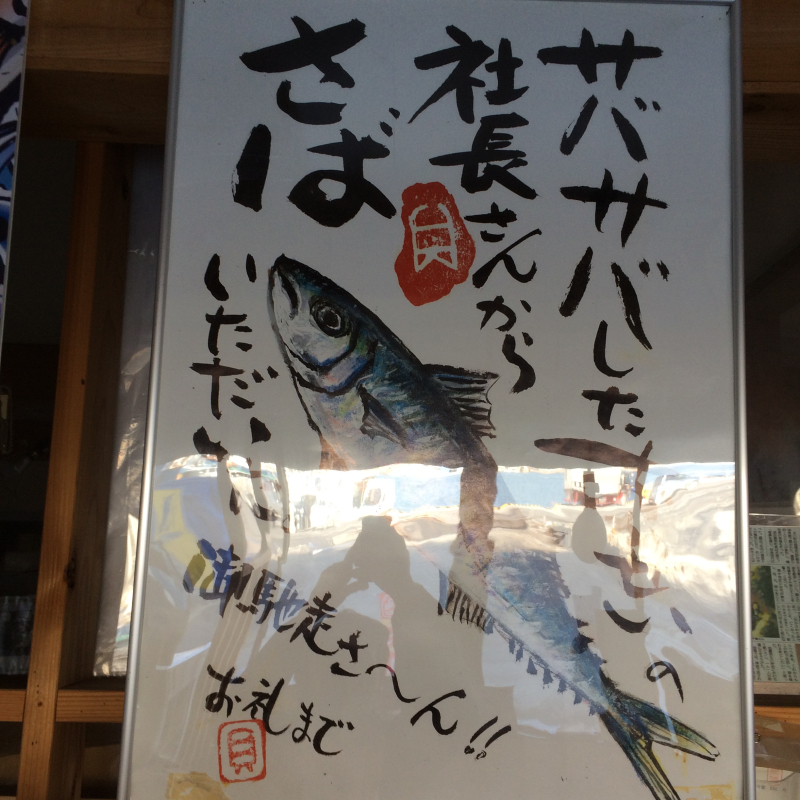 サバサバした
の
社長さんから
さば
いただいた
御馳走さ〜ん!!
お礼まで